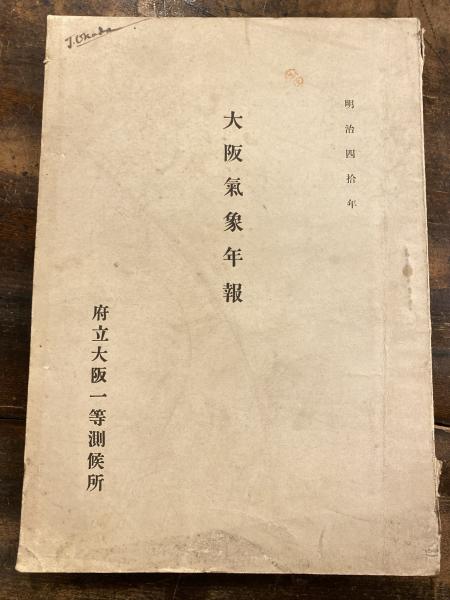 明治四拾年
大阪氣象年報
府立大阪一等測候所
T. Okada